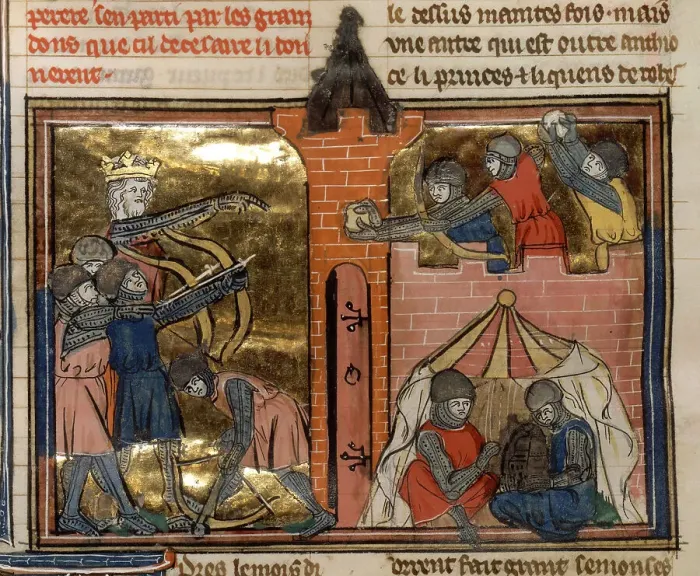 sen parti par les granz
dons que cil de cesaire li don
nerent·
le dessus maintes fois· mais
vne autre qui est outre anthio
ce li princes ⁊ li quens de
pres le mois di
orrent fait grant semonses